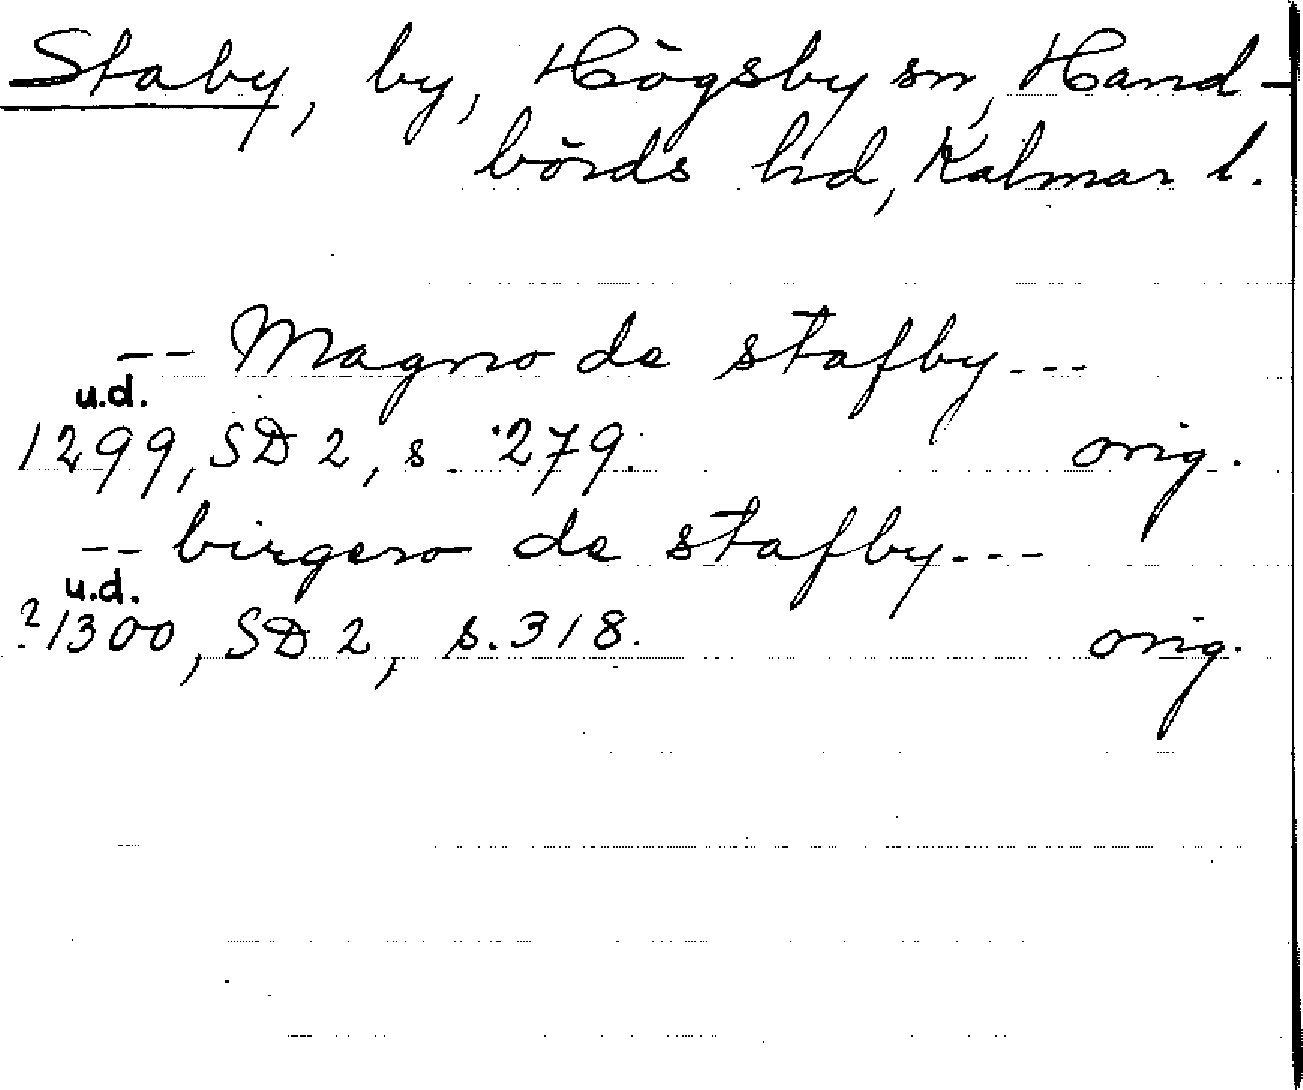 Staby, by, Högsby sn, Hand-
börds hd, Kalmar l.
-- Magno de stafby ---
u.d.
1299, SD 2, s. 279. orig.
-- birgero de stafby ---
u.d.
?1300, SD 2, s. 318. orig.